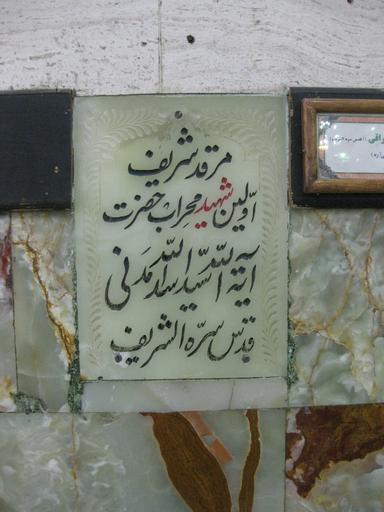 مرقد شریف
اوّلین شهید محراب حضرت
آیة اللّه السّید اسد اللّه مدنی
قدّس سرّه الشریف